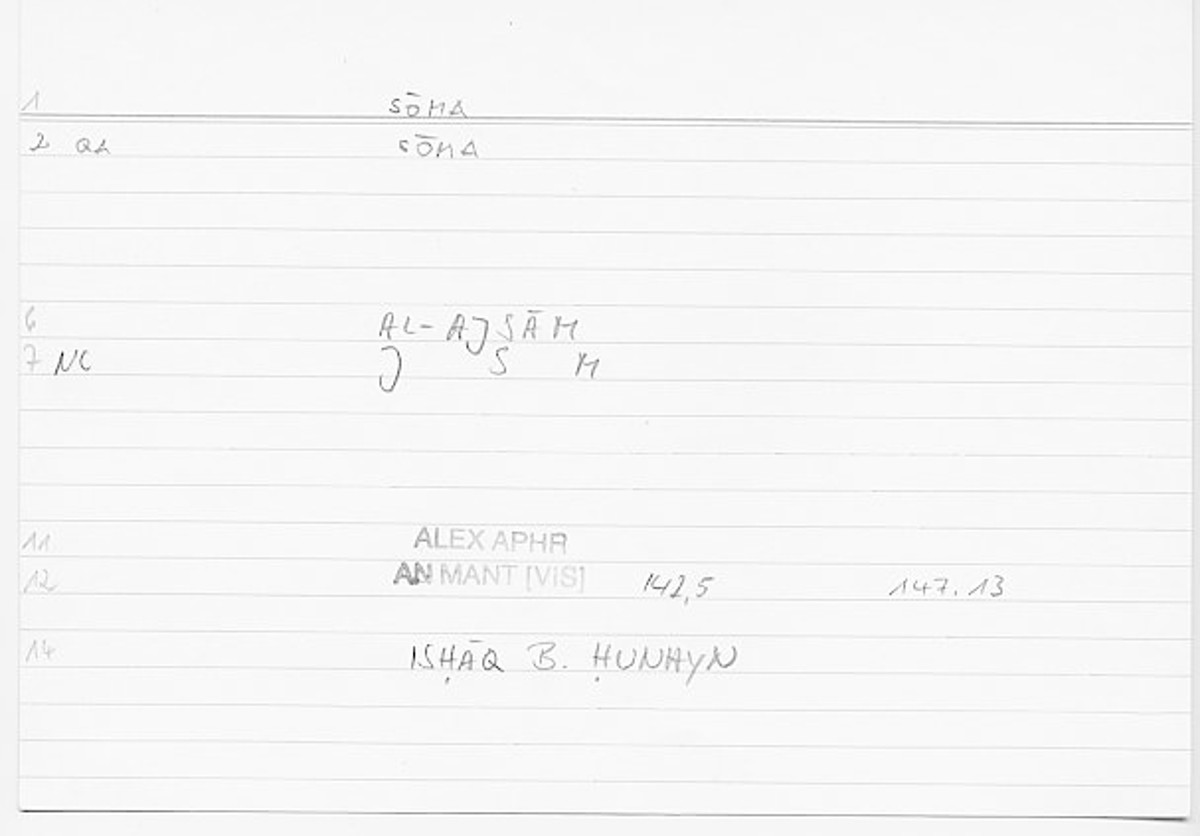 1 SŌMA
2 QL SŌMA
6 AL-AJSĀM
7 NC J S M
11 ALEX APHR
12 AN MANT [VIS] 142,5 147.13
14 ISḤĀQ B. ḤUNAYN